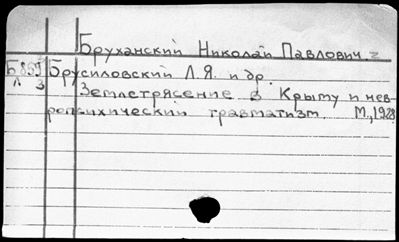 Бруханский Николай Павлович =
Б 855 Брусиловский Л.Я. и др.
Л 3 Землетрясение в Крыму и нев-
ропсихический травматизм. М., 1928